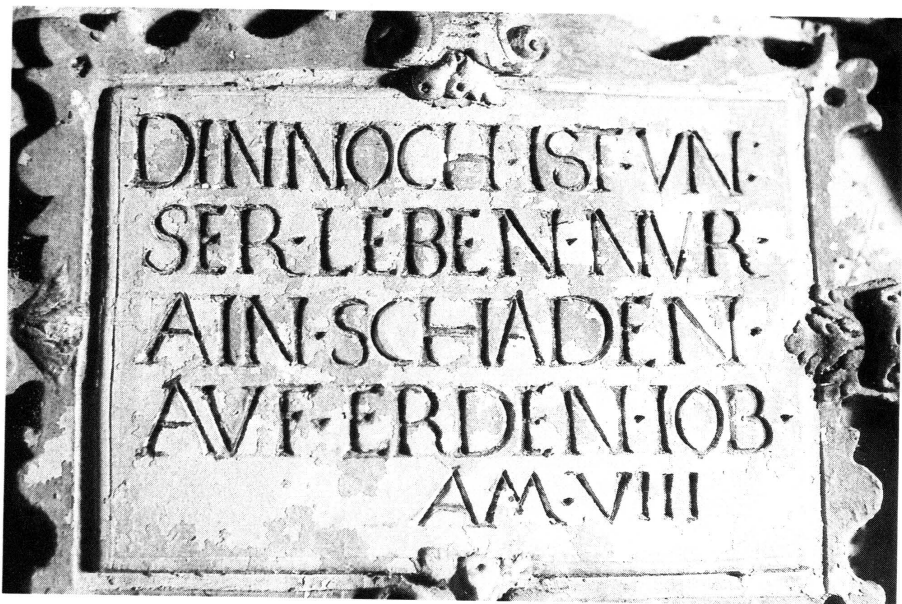 DINNOCH·IST·VN:
SER·LEBEN·NVR·
AIN·SCHADEN·
AVF·ERDEN·IOB·
AM·VIII